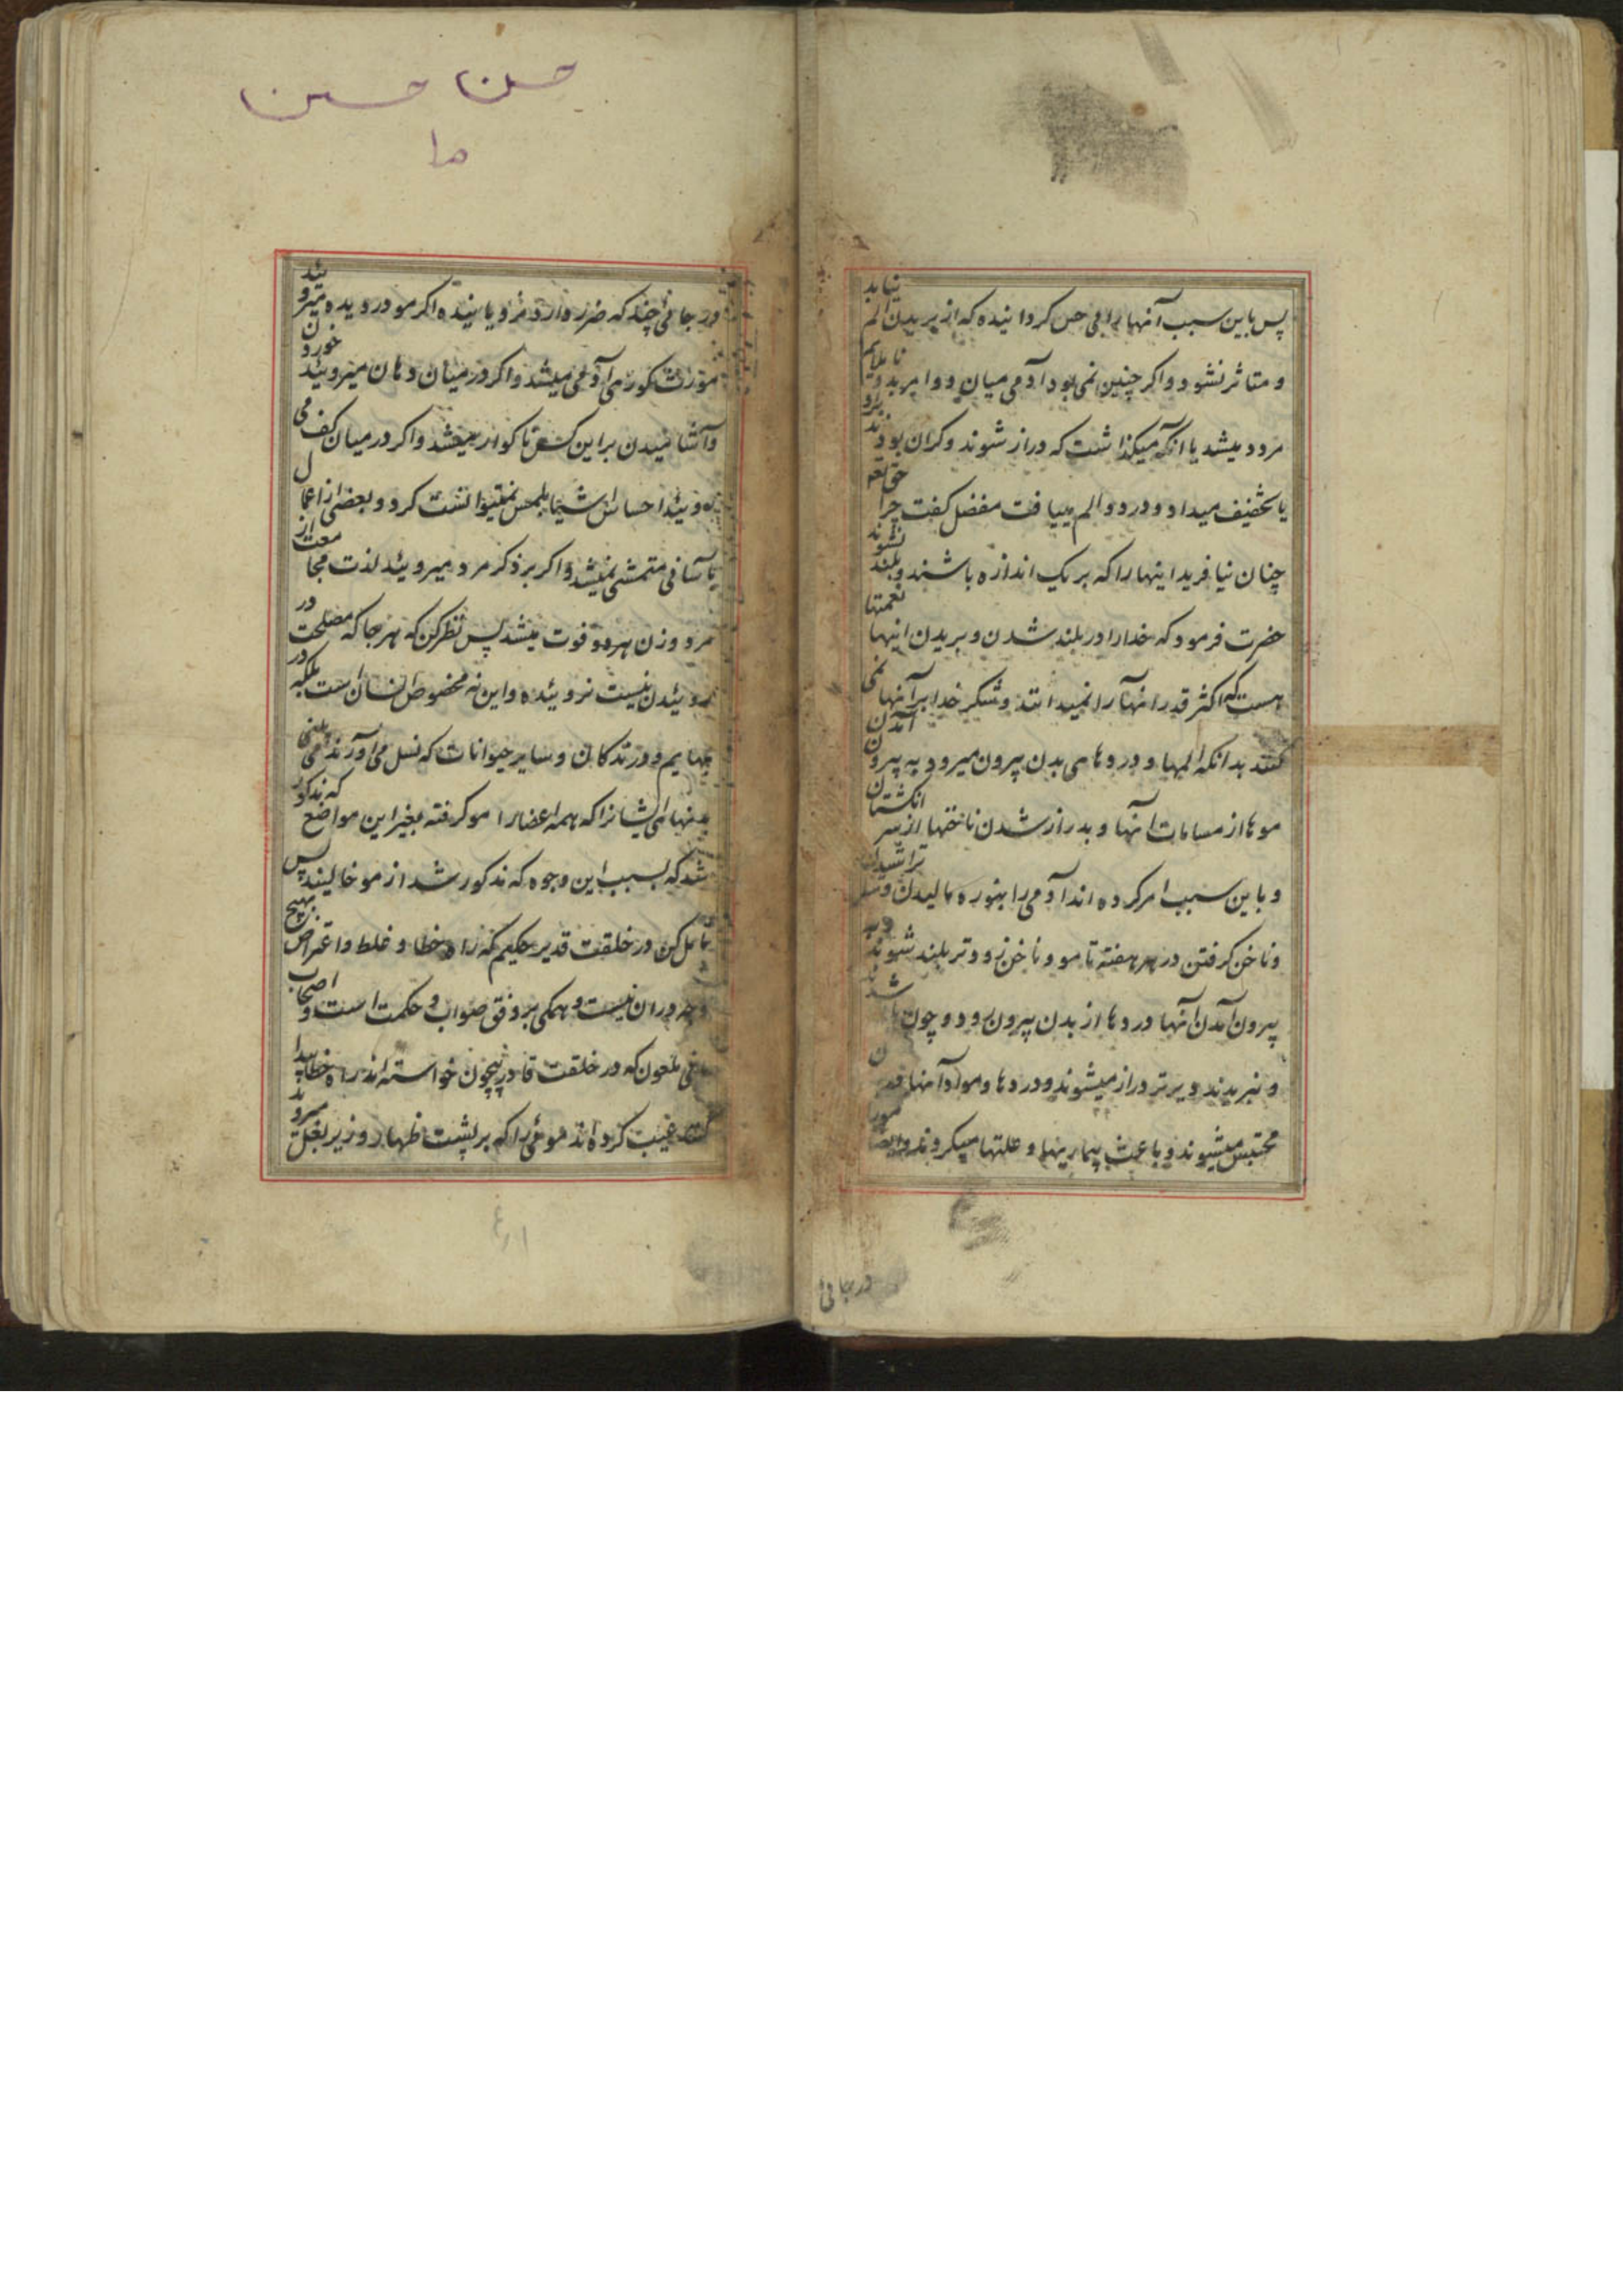 پس باین سبب آنها را بی حس کردانیده که از بریدن الم نیابد
و متاثر نشود و اکر چنین نمی بود آدمی میان دو امر بد و ناملایم
مردد میشد یا انکه میکذاشت که دراز شوند و کران بودند
یا تخفیف میداد و درد و الم مییافت مفضل کفت چرا حق تعه
چنان نیافرید اینها را که بر یک اندازه باشند و بلند نشوند
حضرت فرمود که خدا را در بلند شدن و بریدن اینها نعمتها
هست که اکثر قدر انها را نمیدانند و شکر خدا بر آنها نمی
کنند بدانکه المها و دردهای بدن بیرون میرود به بیرون آمدن
موها از مسامات انها و بدراز شدن ناخنها از سر انکشتان
و باین سبب امر کرده اند آدمی را بنوره مالیدن و سر تراشیدن
و ناخن کرفتن در هر هفته تا مو و ناخن زودتر بلند شوند و به
بیرون آمدن آنها دردها از بدن بیرون رود و چون
و نبریدند دیرتر دراز میشوند و دردها و مواد آنها در
محتبس میشوند و باعث بیماریها و علتها میکردند و ایضا مو را
در جائی
حسن حسین
ما
در جائی چند که ضرر دارد نرویانیده اکر مو در دیده میروئید
مورث کوری آدمی میشد و اکر در میان دهان میروئید خوردن
و آشامیدن بر این کس ناکوار میشد و اکر در میان کف می
روئید احساس اشیا بلمس نمیتوانست کرد و بعضی از اعمال
بآسانی متمشی نمیشد و اکر بر ذکر مرد میروئید لذت مجامعت از
مرد و زن هر دو فوت میشد پس نظر کن که هر جا که مصلحت در
روئیدن نیست نروئیده و این نه مخصوص انسان است بلکه در
بهایم و درندکان و سایر حیوانات که نسل می آورند می بینی
بدنهای ایشانرا که همه اعضا را مو کرفته بغیر این مواضع که مذکور
شد که بسبب این وجوه که مذکور شد از مو خالیند پس
تامل کن در خلقت قدیر حکیم که راه خطا و غلط و اعتراض بهیچ
وجه در ان نیست و همکی بر وفق صواب و حکمت است و اصحاب
مانی ملعون که در خلقت قادر بیچون خواسته اند راه خطا پیدا
کنند عیب کرده اند موئی را که بر پشت ظهار و زیر بغل میروید